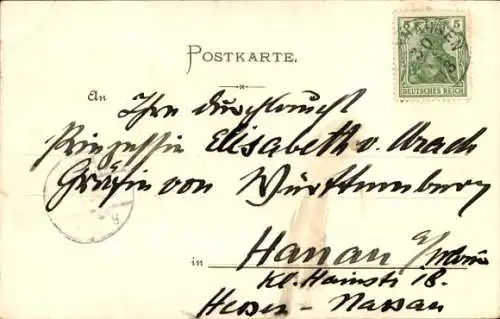 POSTKARTE.
5 5
DEUTSCHES REICH
An Ihre Durchlaucht
Prinzessin Elisabeth v. Urach
Gräfin von Württemberg
in Hanau a/Main
Kl. Hainstr 18.
Hessen-Nassau